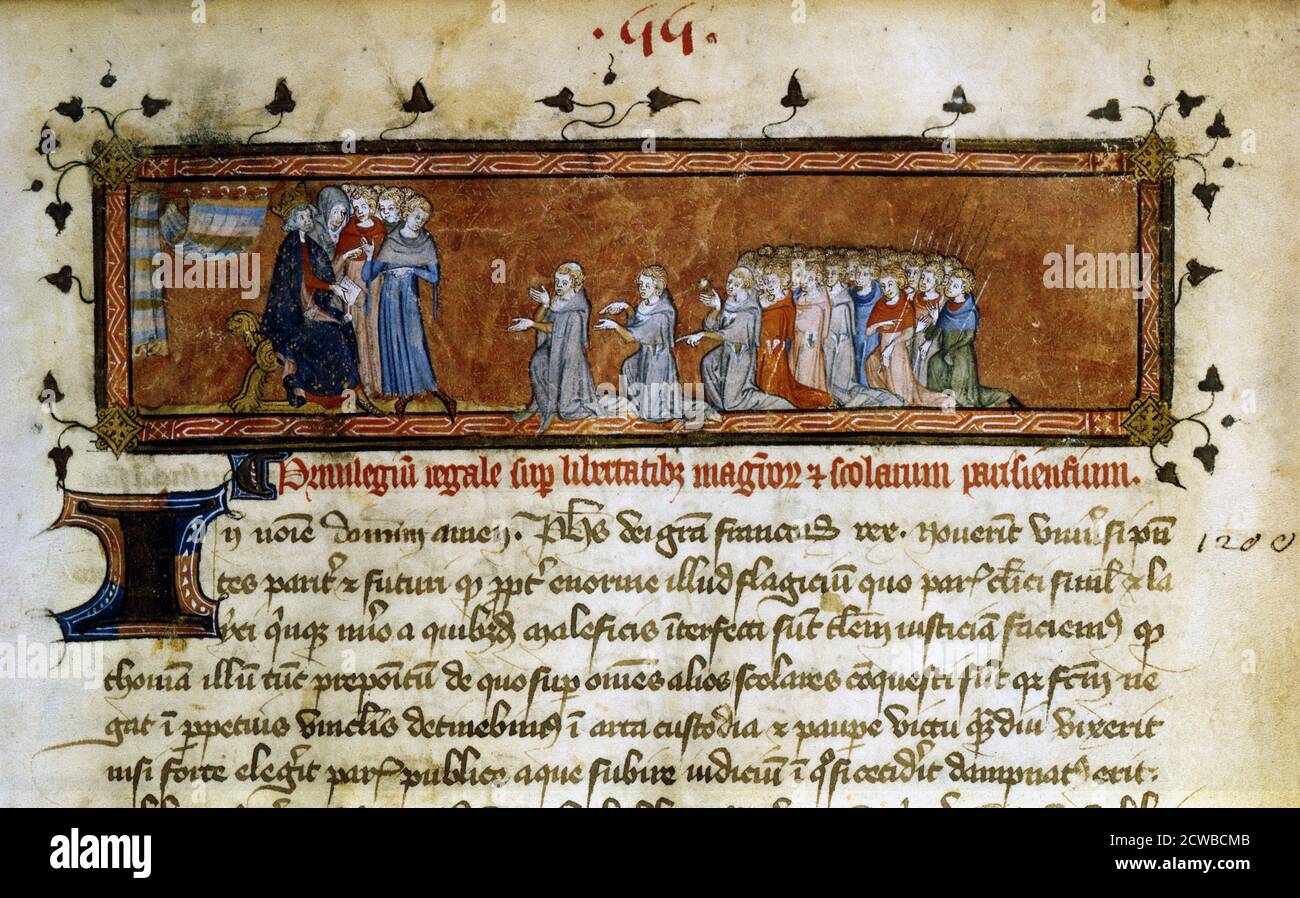 ·qq·
Privilegiū regale sup libertatibꝫ magr̄oꝝ ⁊ scolarum parisiensium.
In noīe domini amen. Ph̄s dei grā francoꝝ rex. Noverīt univ̓si p̄n
tes parit̓ ⁊ futuri ꝙ ꝓpt̓ enorme illud flagiciū quo par̓ cl̓ici simul ⁊ la
yci q̓nqꝫ nūo a quibꝰdā maleficis īterfecti sūt iusticiā faciemꝰ ꝙ
thomā illū tūc prepositū de quo sup om̄es alios scolares cōquesti sūt qꝛ fc̄m ne
gat ī ꝑpetuis vinclis detinebimꝰ ī arta custodia ⁊ paupe victu qᷓdiu vixerit
nisi forte eleḡit par̓ publice aque subire iudiciū ī qͦ si cecid̓it dampnatꝰ erit.
1200
alamy
Image ID: 2CWBCMB
www.alamy.com